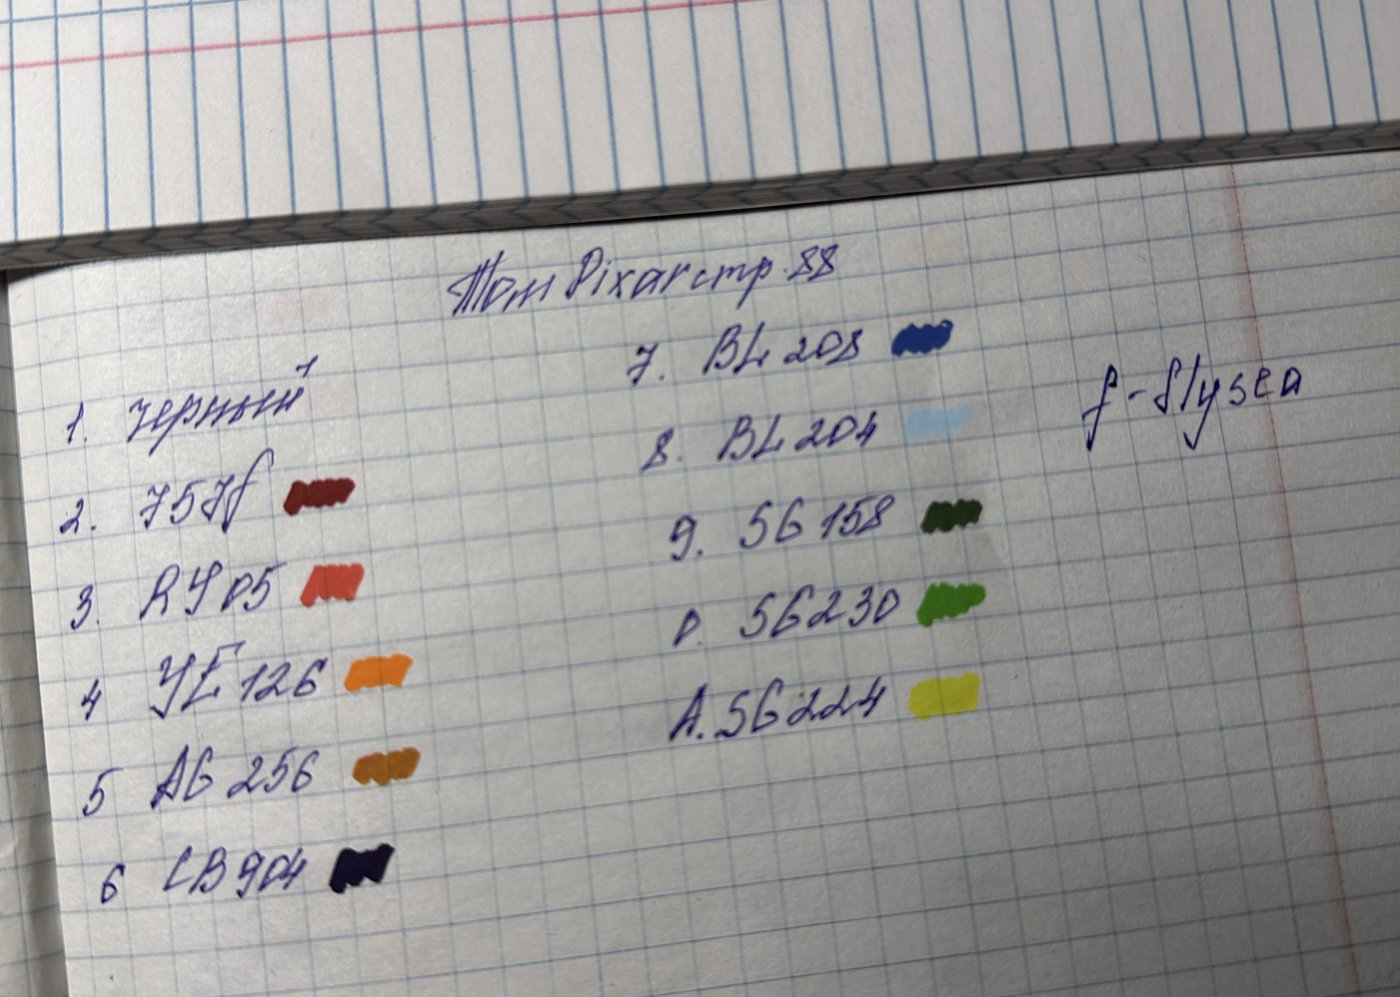 Том Pixar стр. 88
1. Черный
2. 757f
3. RY05
4 YE 126
5 AG 256
6 CB 904
7. BL 208
8. BL 204
9. SG 158
0. SG230
A. SG 224
f - flysea